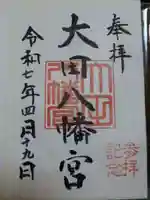 奉拝
大田八幡宮
令和七年四月十九日
参拝
記念